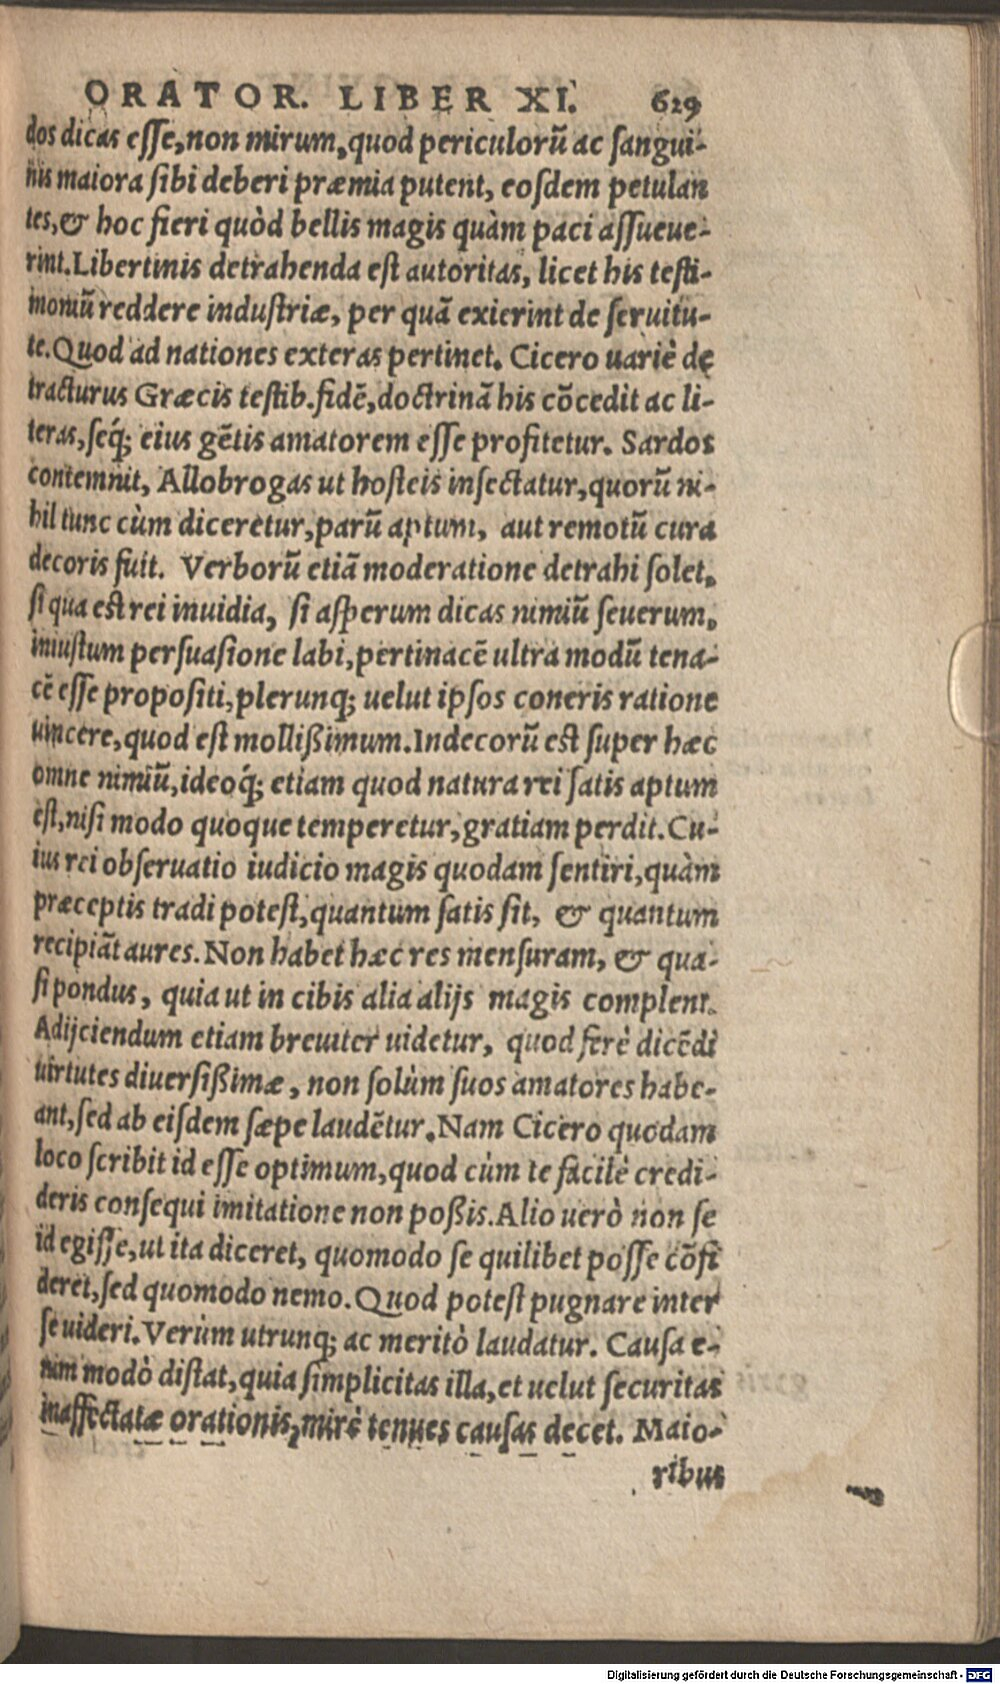 ORATOR. LIBER XI. 629
dos dicas esse, non mirum, quod periculorũ ac sangui-
nis maiora sibi deberi præmia putent, eosdem petulan
tes, & hoc fieri quòd bellis magis quàm paci assueue-
rint. Libertinis detrahenda est autoritas, licet his testi-
moniũ reddere industriæ, per quã exierint de seruitu-
te. Quod ad nationes exteras pertinet. Cicero uariè de
tracturus Græcis testib. fidẽ, doctrinã his cõcedit ac li-
teras, seq́; eius gẽtis amatorem esse profitetur. Sardos
contemnit, Allobrogas ut hosteis insectatur, quorũ ni-
hil tunc cùm diceretur, parũ aptum, aut remotũ cura
decoris fuit. Verborũ etiã moderatione detrahi solet,
si qua est rei inuidia, si asperum dicas nimiũ seuerum,
iniustum persuasione labi, pertinacẽ ultra modũ tena-
cẽ esse propositi, plerunq; uelut ipsos coneris ratione
uincere, quod est mollißimum. Indecorũ est super hæc
omne nimiũ, ideoq́; etiam quod natura rei satis aptum
est, nisi modo quoque temperetur, gratiam perdit. Cu-
ius rei obseruatio iudicio magis quodam sentiri, quàm
præceptis tradi potest, quantum satis sit, & quantum
recipiãt aures. Non habet hæc res mensuram, & qua-
si pondus, quia ut in cibis alia alijs magis complent.
Adijciendum etiam breuiter uidetur, quod ferè dicẽdi
uirtutes diuersißimæ, non solùm suos amatores habe-
ant, sed ab eisdem sæpe laudẽtur. Nam Cicero quodam
loco scribit id esse optimum, quod cùm te facilè credi-
deris consequi imitatione non poßis. Alio uerò non se
id egisse, ut ita diceret, quomodo se quilibet posse cõfi
deret, sed quomodo nemo. Quod potest pugnare inter
se uideri. Verùm utrunq; ac meritò laudatur. Causa e-
nim modò distat, quia simplicitas illa, et uelut securitas
inaffectatæ orationis, mirè tenues causas decet. Maio-
ribus
Digitalisierung gefördert durch die Deutsche Forschungsgemeinschaft - DFG